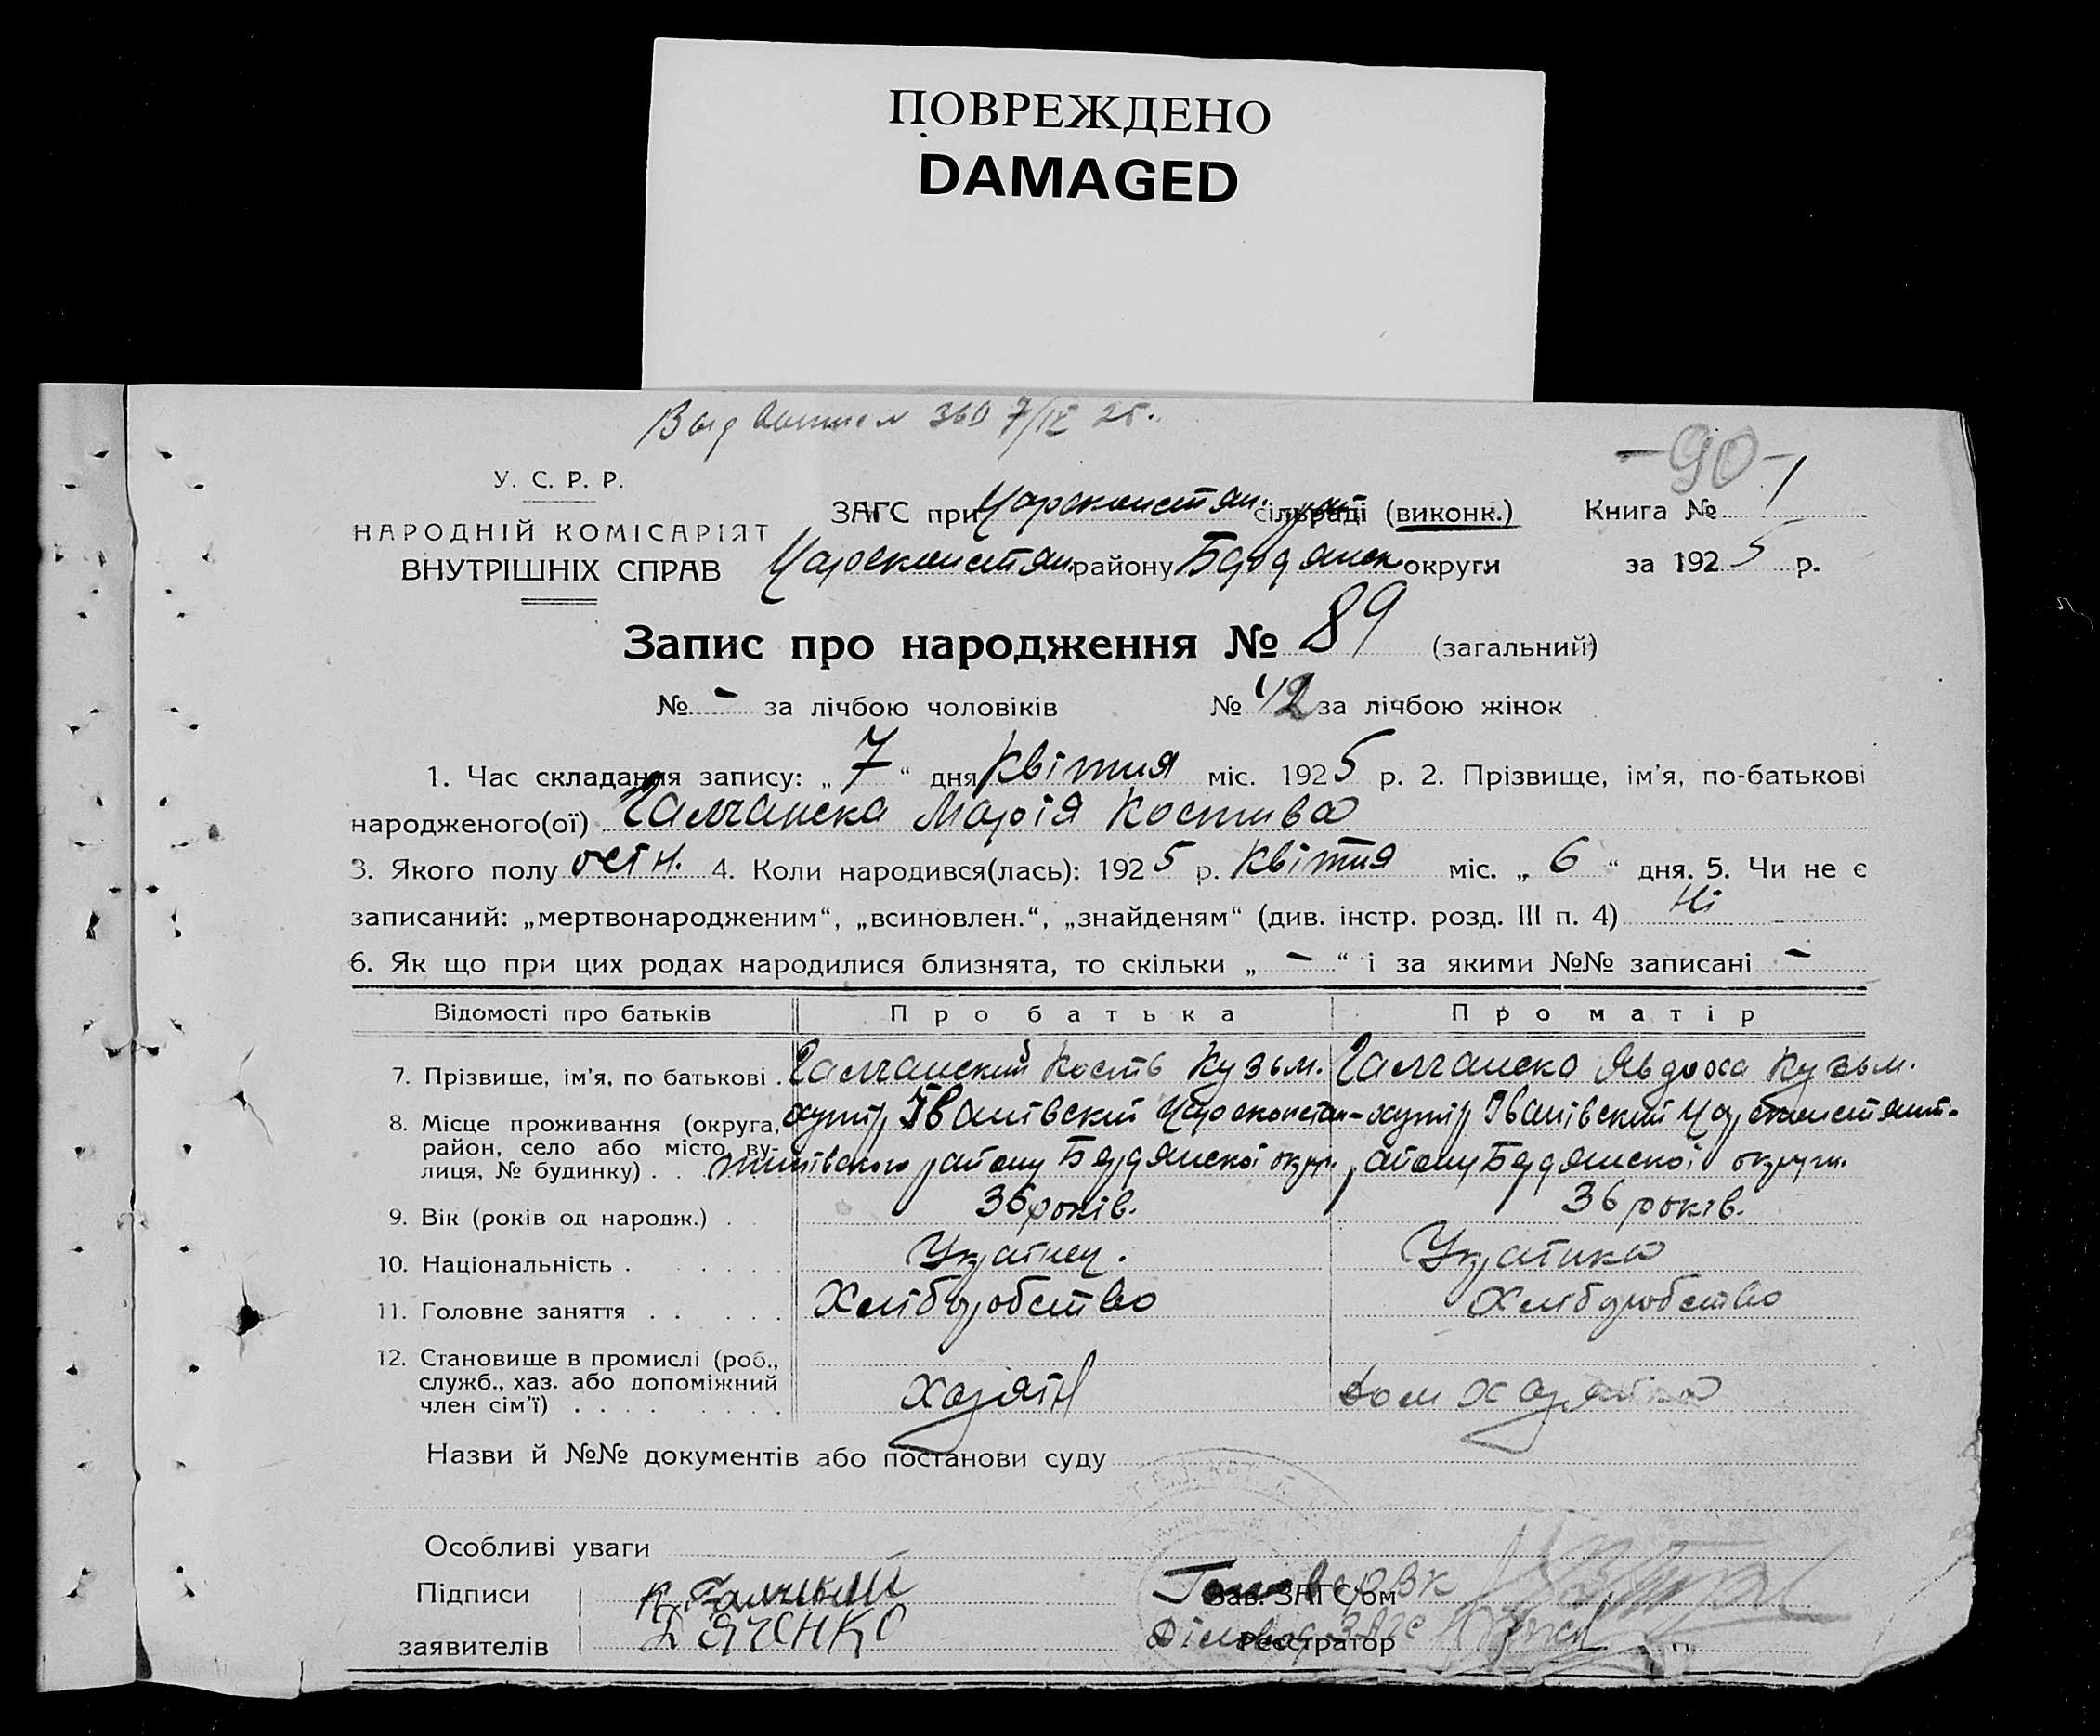 ПОВРЕЖДЕНО
DAMAGED
360 7/IV 25.
-90-
У. С. Р. Р.
НАРОДНІЙ КОМІСАРІЯТ
ВНУТРІШНІХ СПРАВ
ЗАГС при Царсконстян. сільраді (виконк.)
Книга № 1
Царсконстян. району Бердянськ округи
за 1925 р.
Запис про народження № 89 (загальний)
№ - за лічбою чоловіків № 42 за лічбою жінок
1. Час складання запису: „7“ дня Квітня міс. 1925 р. 2. Прізвище, ім'я, по-батькові
народженого(ої) Галчанска Марія Костива
3. Якого полу 4. Коли народився(лась): 1925 р. Квітня міс. „6“ дня. 5. Чи не є
записаний: „мертвонародженим“, „всиновлен.“, „знайденям“ (див. інстр. розд. III п. 4) Ні
6. Як що при цих родах народилися близнята, то скільки „-“ і за якими №№ записані -
Відомості про батьків Про батька Про матір
7. Прізвище, ім'я, по батькові . Галчанский Кость Кузьм. Галчанска Явдоха Кузьм.
8. Місце проживання (округа, район, село або місто, вулиця, № будинку) . .
хутір Іванівский Царсконстян-
тинівского району Бердянскої окр.
хутір Іванівский Царсконстянт.
району Бердянскої округи.
9. Вік (років од народж.) . 36 років. 36 років.
10. Національність . Украінец. Украінка
11. Головне заняття . . Хліборобство Хліборобство
12. Становище в промислі (роб.,
служб., хаз. або допоміжний
член сім'ї) . . . . Хазяін Дом хазяйка
Назви й №№ документів або постанови суду
Особливі уваги
Підписи К. Галчаний Голова РВК Зав. ЗАГС'ом
заявителів Дяченко Діловод ЗАГС Реєстратор